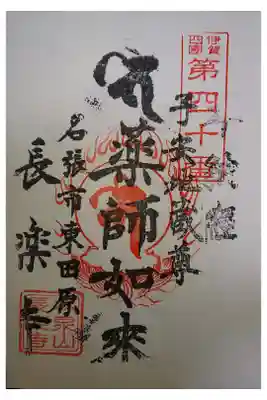 伊賀
四國
第四十
子安地蔵尊
薬師如來
名張市東田原
長楽寺